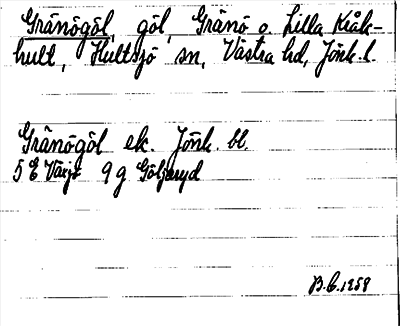 Gränögöl, göl, Gränö o. Lilla Kråk-
hult, Hultsjö sn, Västra hd, Jönk. l.
Gränögöl ek. Jönk. bl.
5 E Växjö 9 g Göljaryd
B.C. 1958